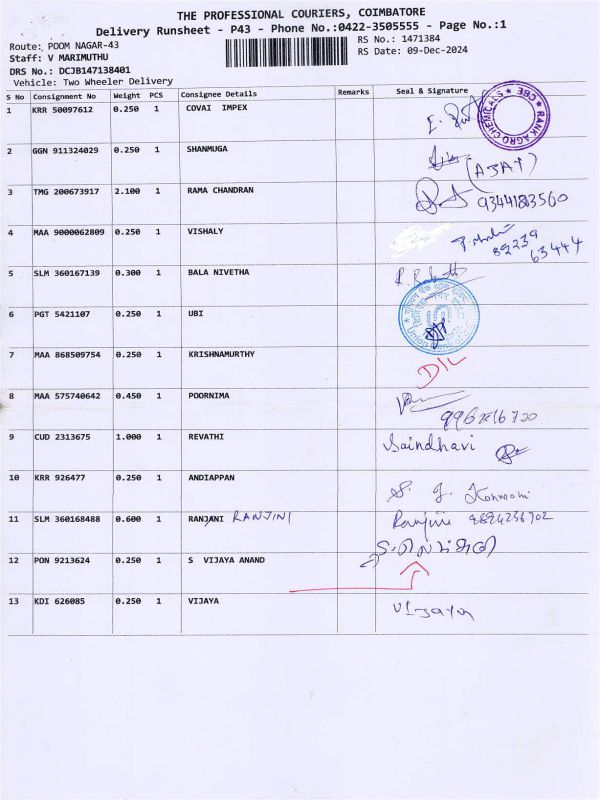 THE PROFESSIONAL COURIERS, COIMBATORE
Delivery Runsheet - P43 - Phone No.:0422-3505555 - Page No.:1
Route: POOM NAGAR-43
RS No.: 1471384
Staff: V MARIMUTHU
RS Date: 09-Dec-2024
DRS No.: DCJB147138401
Vehicle: Two Wheeler Delivery
S No Consignment No Weight PCS Consignee Details Remarks Seal & Signature
1 KRR 50097612 0.250 1 COVAI IMPEX
RANK AGRO CHEMICALS ★ CBE ★
2 GGN 911324029 0.250 1 SHANMUGA (AJAY)
3 TMG 200673917 2.100 1 RAMA CHANDRAN
4 MAA 9000062809 0.250 1 VISHALY
89239
63444
5 SLM 360167139 0.300 1 BALA NIVETHA
6 PGT 5421107 0.250 1 UBI
7 MAA 868509754 0.250 1 KRISHNAMURTHY D/L
8 MAA 575740642 0.450 1 POORNIMA
9 CUD 2313675 1.000 1 REVATHI Saindhavi
10 KRR 926477 0.250 1 ANDIAPPAN
11 SLM 360168488 0.600 1 RANJANI RANJINI Ranjini
12 PON 9213624 0.250 1 S VIJAYA ANAND
13 KDI 626085 0.250 1 VIJAYA Vijaya